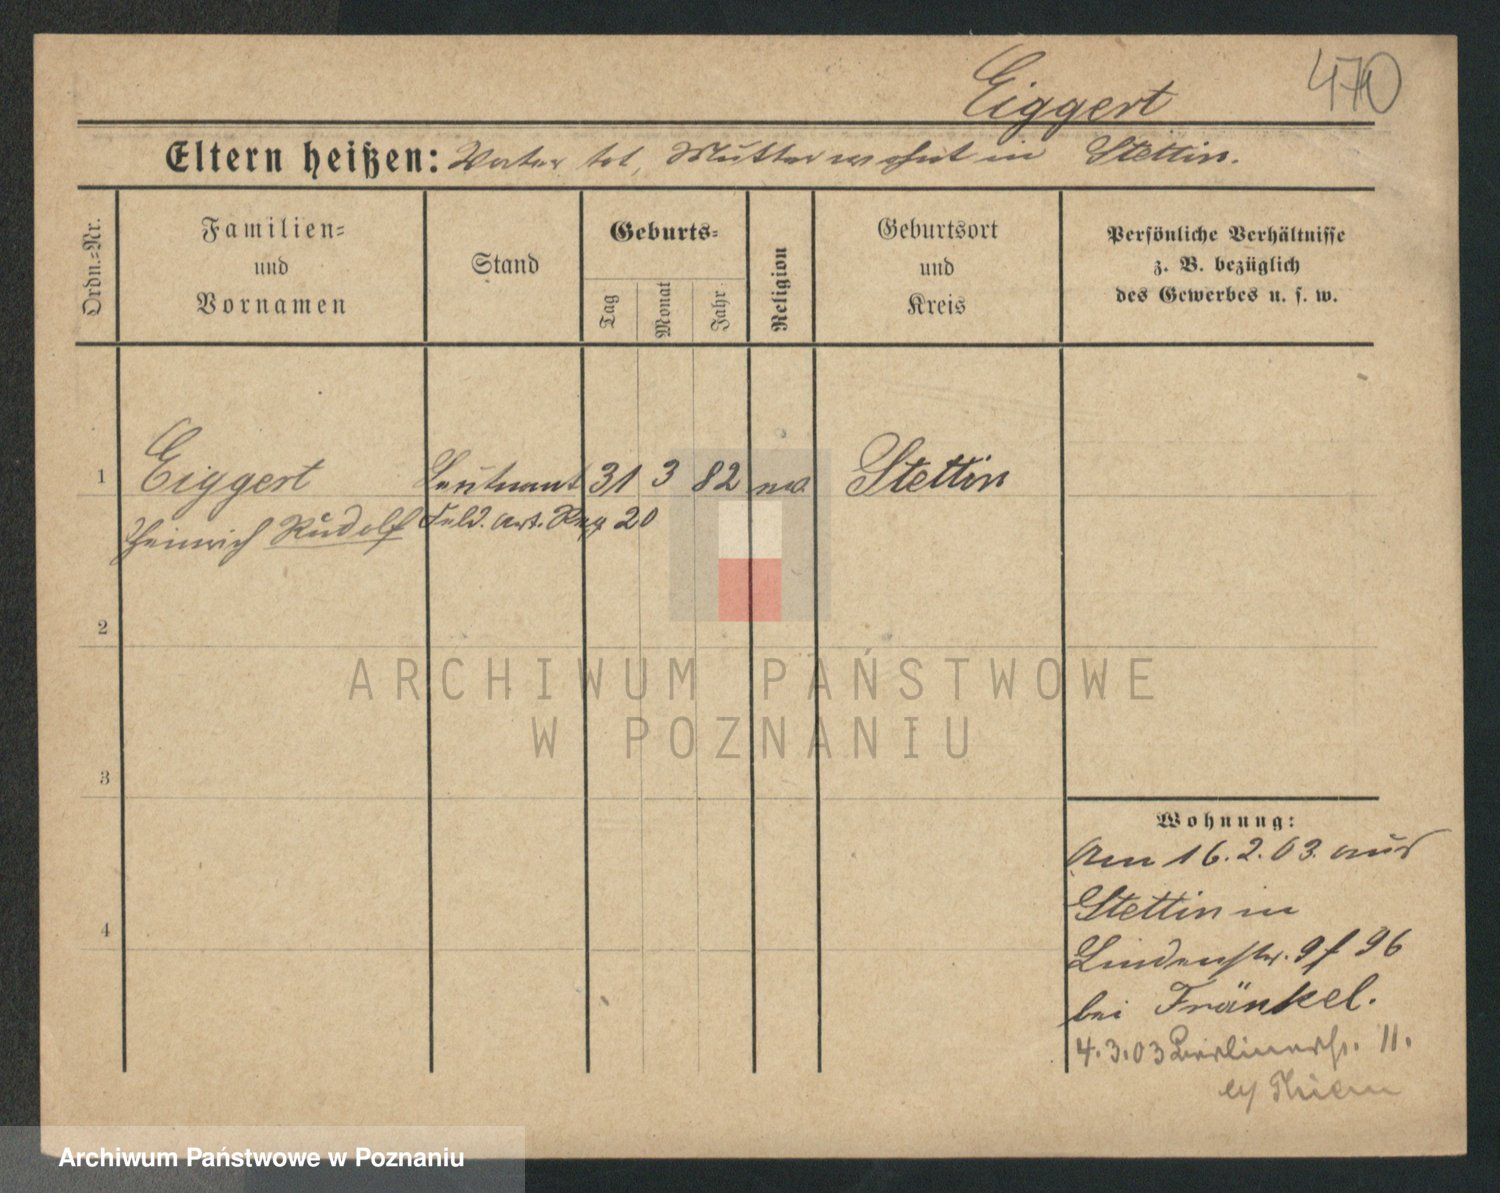 Eiggert 470
Eltern heißen: Vater tot, Mutter wohnt in Stettin.
Ordn.-Nr.
Familien-
und
Vornamen
Stand
Geburts-
Tag
Monat
Jahr
Religion
Geburtsort
und
Kreis
Persönliche Verhältnisse
z. B. bezüglich
des Gewerbes u. s. w.
1 Eiggert Leutnant 31 3 82 ev. Stettin
Heinrich Rudolf Feld. art. Reg 20
2
ARCHIWUM PAŃSTWOWE
W POZNANIU
3
Wohnung:
Am 16.2.03. aus
Stettin in
4
Lindenstr. 9 f 96
bei Fränkel.
4.3.03 Berlinerstr. 11.
Thiem
Archiwum Państwowe w Poznaniu